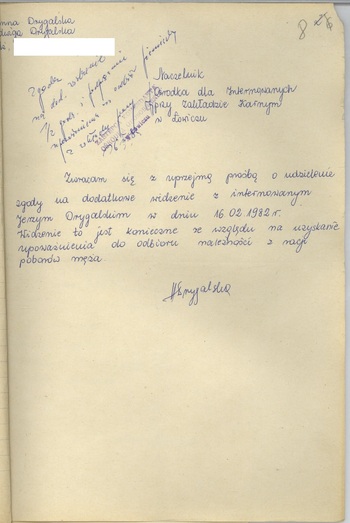 Drygalska
Drygalska
8
Zgoda
na dod. widzenie
1/2 godz. i podpisanie
upoważnienia
Naczelnik
Ośrodka dla Internowanych
przy Zakładzie Karnym
w Łowiczu
Zwracam się z uprzejmą prośbą o udzielenie
zgody na dodatkowe widzenie z internowanym
Jerzym Drygalskim w dniu 16.02.1982 r.
Widzenie to jest konieczne ze względu na uzyskanie
upoważnienia do odbioru należności z racji
poborów męża.
HDrygalska